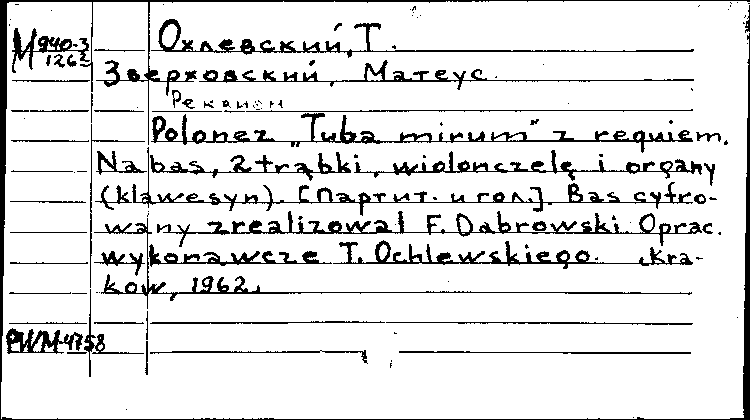 М 940-3
1262
Охлевский, Т.
Зверховский, Матеус
Реквием
Polonez „Tuba mirum" z requiem.
Na bas, 2 trąbki, wiolonczelę i organy
(klawesyn). [Партит. и гол.]. Bas cyfro-
wany zrealizował F. Dąbrowski. Oprac.
wykonawcze T. Ochlewskiego. Kra-
ków, 1962.
PWM-4758